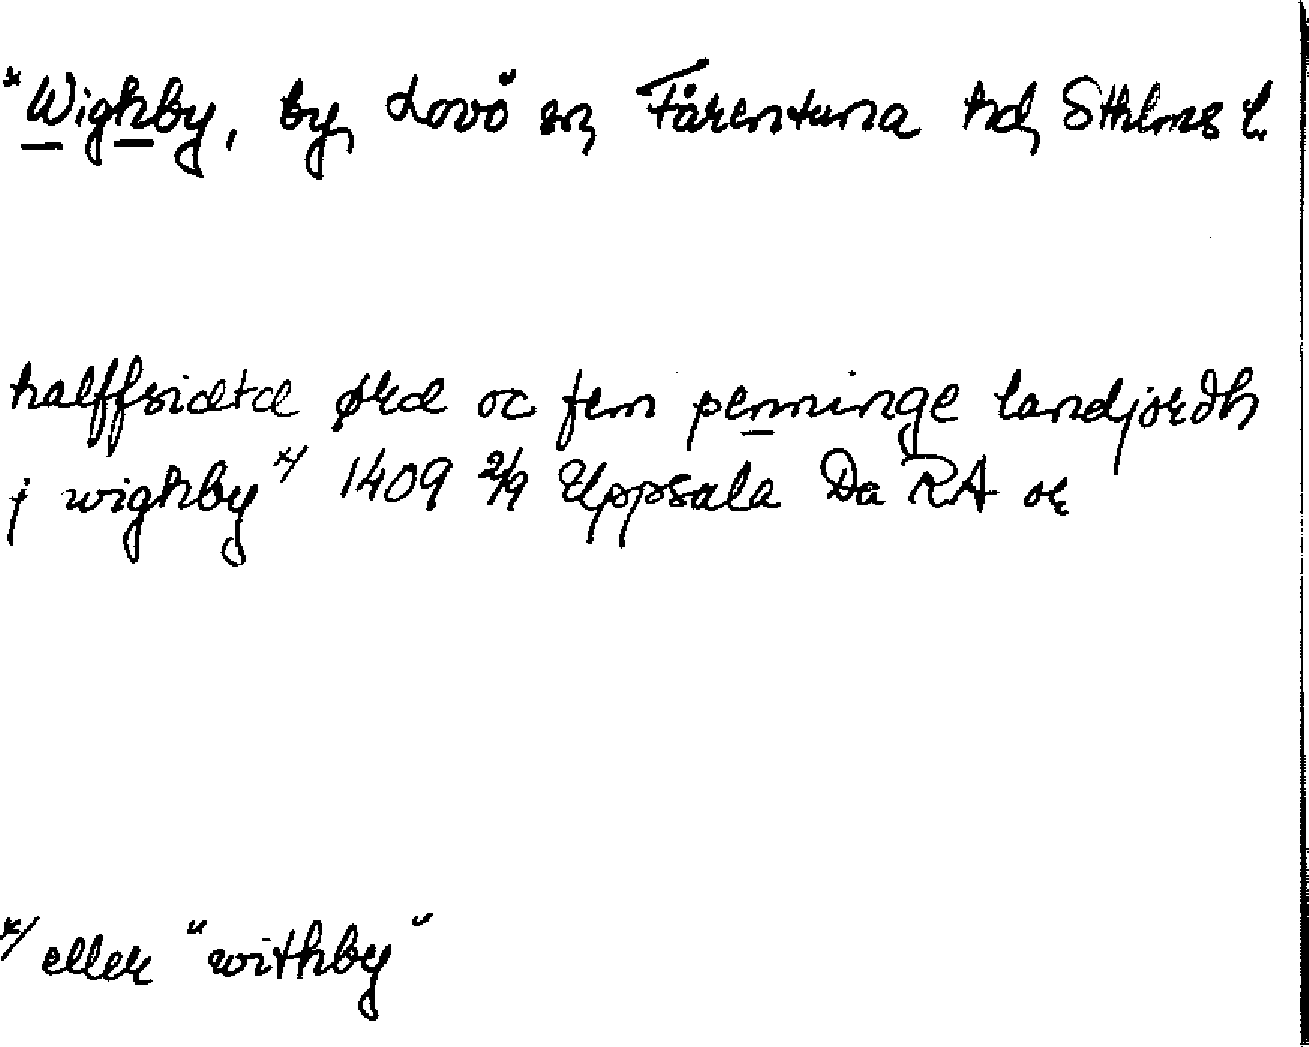 *Wighby, by, Lovö sn, Färentuna hd, Sthlms l.
halffsiætæ øræ oc fem penninge landjordh
j wighby */ 1409 2/9 Uppsala Da RA or
*/ eller "withby"